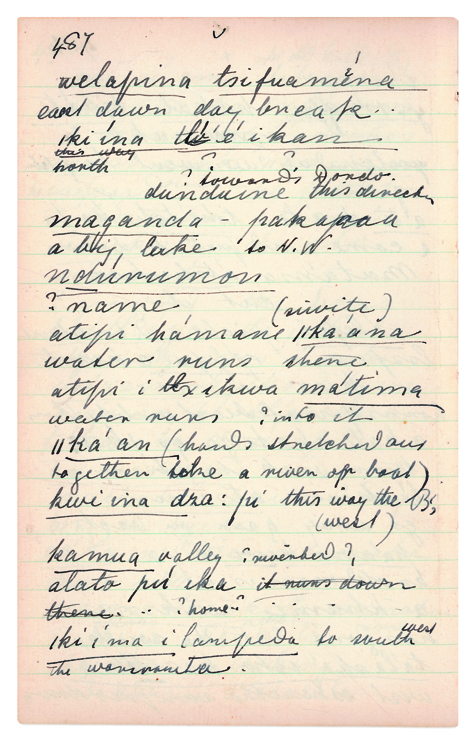 487
welapina tsifuaména
east dawn day break.
ıkiína é ikan
this way
north
? towards ? Dondo.
dunduine this direction
maganda pakapaa
a big lake to N.W.
ndurumori
? name (
atipi hámane ǁkaána
water runs there
atipi i ikwa mátima
water runs ? into it
ǁká'an (hands stretched out
together like a river or boat)
kwiina dza: pi this way the
(west)
kamua valley ? riverbed ?
alato pu ika it runs down
there. .. ? home ?
ıkiíma i lampeda to south west
the